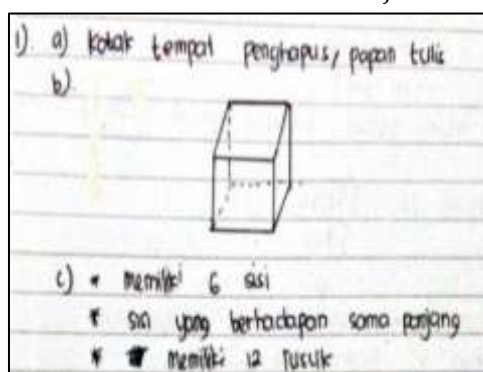 1). a) kotak tempat penghapus, papan tulis
b)
c) * memiliki 6 sisi
* sisi yang berhadapan sama panjang
* memiliki 12 rusuk